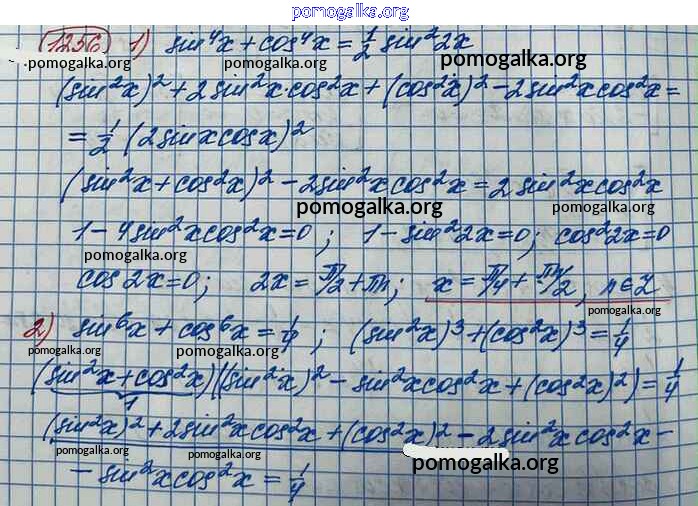 pomogalka.org
1256) 1) sin⁴x + cos⁴x = 1/2 sin²2x
pomogalka.org pomogalka.org pomogalka.org
(sin²x)² + 2sin²x·cos²x + (cos²x)² - 2sin²xcos²x =
pomogalka.org
= 1/2 (2sinxcosx)²
pomogalka.org pomogalka.org
(sin²x + cos²x)² - 2sin²xcos²x = 2sin²xcos²x
pomogalka.org pomogalka.org
1 - 4sin²xcos²x = 0; 1 - sin²2x = 0; cos²2x = 0
pomogalka.org
cos2x = 0; 2x = π/2 + πn; x = π/4 + πn/2, n∈Z
pomogalka.org
2) sin⁶x + cos⁶x = 1/4; (sin²x)³ + (cos²x)³ = 1/4
pomogalka.org pomogalka.org pomogalka.org
(sin²x + cos²x)((sin²x)² - sin²xcos²x + (cos²x)²) = 1/4
1
pomogalka.org
(sin²x)² + 2sin²xcos²x + (cos²x)² - 2sin²xcos²x -
pomogalka.org pomogalka.org
- sin²xcos²x = 1/4